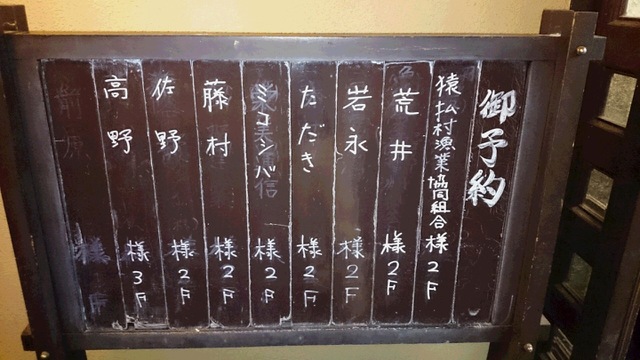 御予約
猿払村漁業協同組合様2F
荒井様2F
岩永様2F
ただき様2F
ミヨシバ様2F
藤村様2F
佐野様2F
高野様3F
様